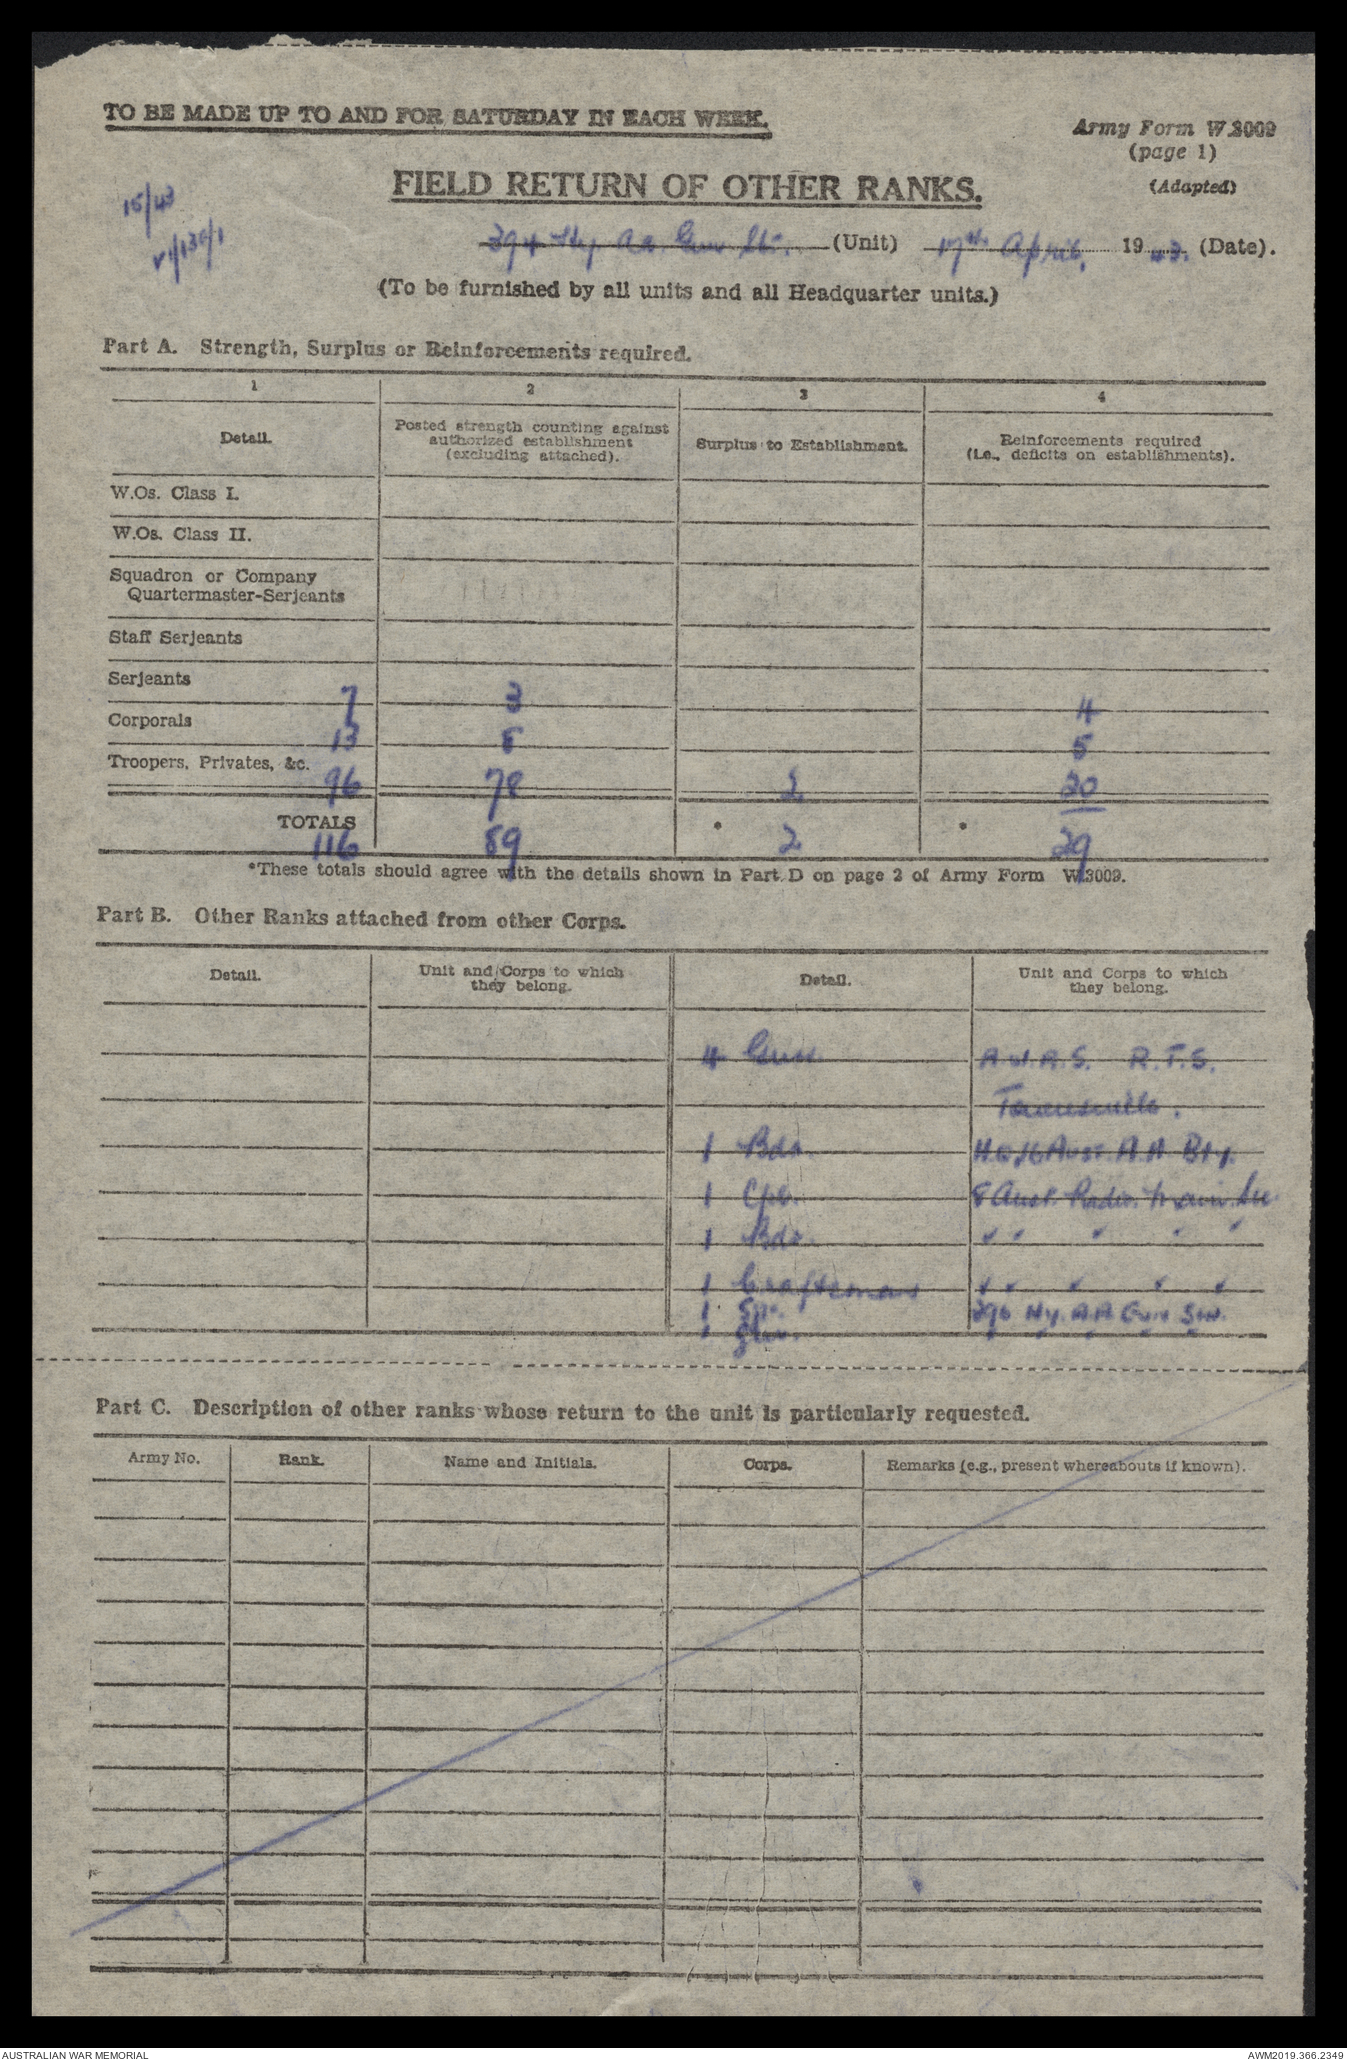 TO BE MADE UP TO AND FOR SATURDAY IN EACH WEEK.
Army Form W.3009
(page 1)
(Adapted)
FIELD RETURN OF OTHER RANKS.
15/43
394 Hy AA Gun Stn. (Unit) 17th April, 1943. (Date).
(To be furnished by all units and all Headquarter units.)
Part A. Strength, Surplus or Reinforcements required.
1 2 3 4
Detail. Posted strength counting against authorized establishment (excluding attached). Surplus to Establishment. Reinforcements required (i.e., deficits on establishments).
W.Os. Class I.
W.Os. Class II.
Squadron or Company
Quartermaster-Serjeants
Staff Serjeants
Serjeants 7 3 4
Corporals 13 8 5
Troopers, Privates, &c. 96 78 2 20
TOTALS 116 89 * 2 * 29
*These totals should agree with the details shown in Part D on page 2 of Army Form W.3009.
Part B. Other Ranks attached from other Corps.
Detail. Unit and Corps to which they belong. Detail. Unit and Corps to which they belong.
4 Gnrs. A.W.A.S. R.T.S.
Townsville.
1 Bdr. H.Q. 16 Aust. A.A Bty.
1 Cpl. 8 Aust. Radio. Main. Sec
1 Bdr. " " " " "
1 Craftsman " " " " "
1 396 Hy. A.A Gun Stn.
1
Part C. Description of other ranks whose return to the unit is particularly requested.
Army No. Rank. Name and Initials. Corps. Remarks (e.g., present whereabouts if known).
AUSTRALIAN WAR MEMORIAL AWM2019.366.2349